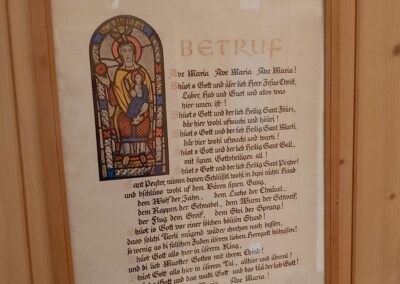 BETRUF
Ave Maria Ave Maria Ave Maria!
Bhüot's Gott und üser lieb Herr Jesus Christ,
Luber, Hab und Guot und alles was
hier umen ist!
Bhüot's Gott und der lieb Heilig Sant Jöüri,
där hier wohl ufwachi und höüri!
Bhüot's Gott und der lieb Heilig Sant Marti,
där hier wohl ufwachi und warti!
Bhüot's Gott und der lieb Heilig Sant Gall,
mit synen Gottsheiligen all!
Bhüot's Gott und der lieb Heilig Sant Peyter!
Sant Peyter, nimm dynen Schlüssel wohl in dyni rächti Hand
und bschliuss wohl uf dem Bären synen Gang,
dem Wolf der Zahn, dem Luchs der Chräuel,
dem Rappen der Schnabel, dem Wurm der Schweif,
der Flug dem Greif, dem Stei der Sprung!
Bhüot is Gott vor einer solchen bösen Stund!
dass solchi Tierli mögend wäder chretzen nach byssen,
so wenig as di falschen Juden üseren lieben Herrgott bschyssen!
Bhüot Gott alls hier in üserem Ring,
und di lieb Muotter Gottes mit ihrem Chind!
Bhüot Gott alls hier in üserem Tal, allhier und überal!
Gott und das walti Gott und das tüe der lieb Gott!
Ave Maria!